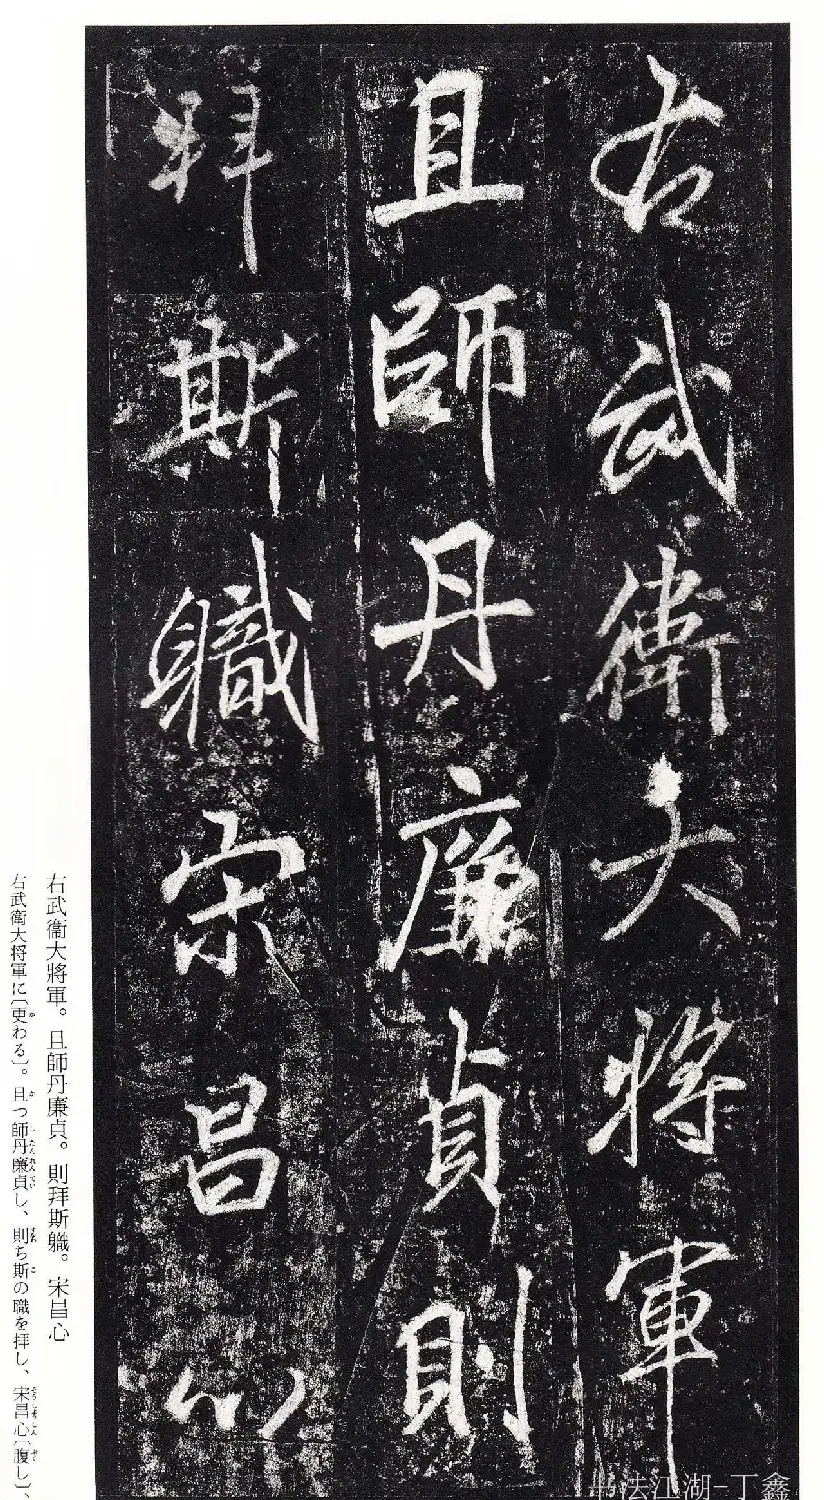 右武衛大將軍
且師丹廉貞則
拜斯軄宋昌心
右武衞大將軍。且師丹廉貞。則拜斯軄。宋昌心
右武衞大将軍に〔更わる〕。且つ師丹廉貞し、則ち斯の職を拝し、宋昌心〔腹し〕、
书法江湖-丁鑫